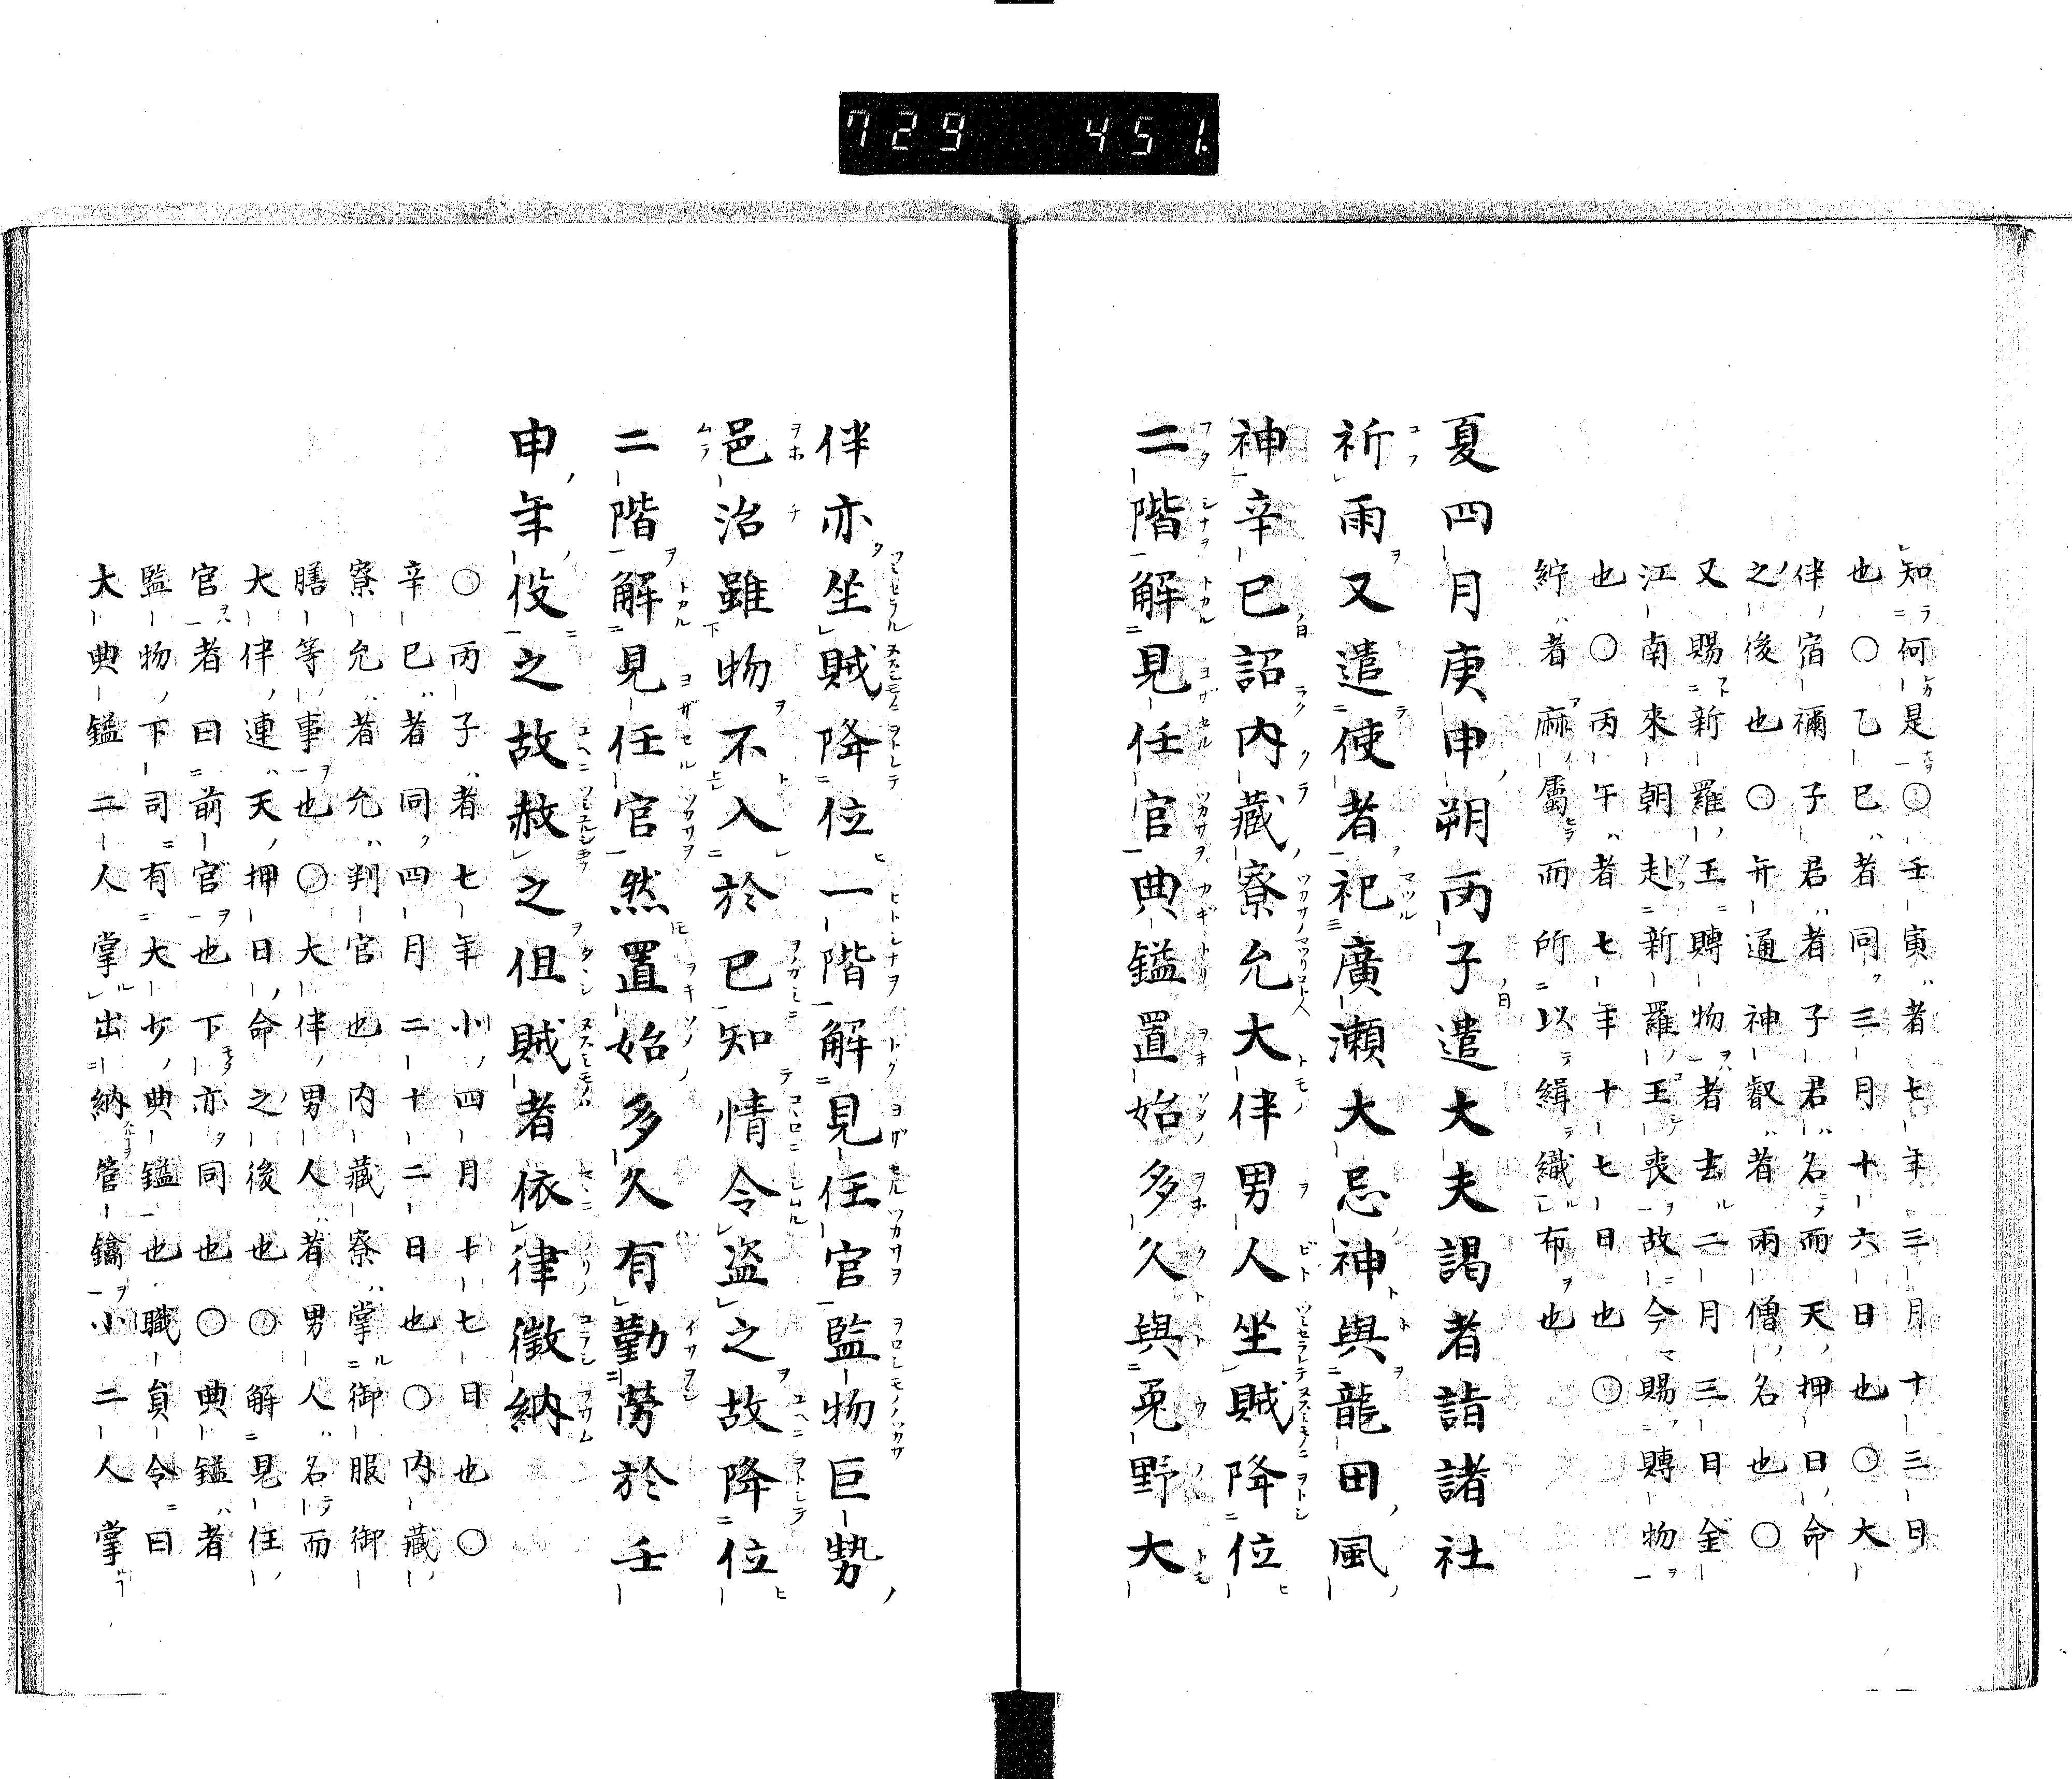 729 451.
知何是○壬寅者七年三月十三日
也○乙巳者同三月十六日也○大
伴宿禰子君者子君名而天押日命
之後也○弁通神叡者兩僧名也○
又賜新羅王賻物者去二月三日金
江南來朝赴新羅王喪故今賜賻物
也○丙午者七年十七日也○
紵者麻屬而所以緝織布也
夏四月庚申朔丙子遣大夫謁者詣諸社
祈雨又遣使者祀廣瀬大忌神與龍田風
神辛巳詔内藏寮允大伴男人坐賊降位
二階解見任官典鎰置始多久與菟野大
伴亦坐賊降位一階解見任官監物巨勢
邑治雖物不入於已知情令盗之故降位
二階解見任官然置始多久有勤勞於壬
申年伇之故赦之但賊者依律徴納
○丙子者七年小四月十七日也○
辛巳者同四月二十二日也○内藏
寮允者允判官也内藏寮掌御服御
膳等事也○大伴男人者男人名而
大伴連天押日命之後也○解見任
官者曰前官也下亦同也○典鎰者
監物下司有大少典鎰也職員令曰
大典鎰二人掌出納管鑰小二人掌